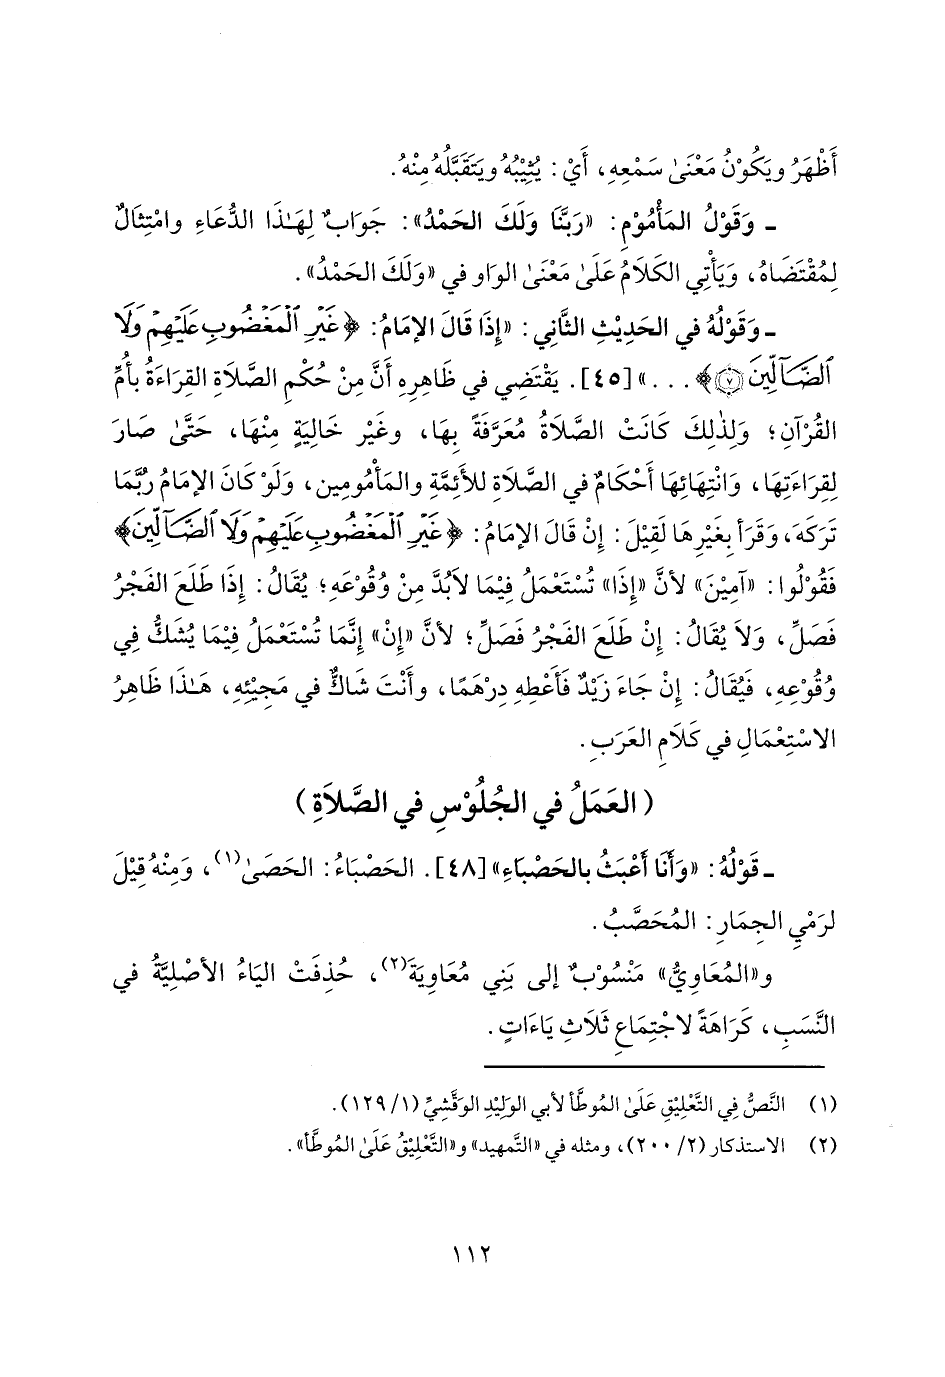 أَظْهَرُ ويَكُوْنُ مَعْنَىٰ سَمْعِهِ، أَيْ: يُثِيْبُهُ ويَتَقَبَّلُهُ مِنْهُ.
ـ وَقَوْلُ المَأْمُوْمِ: «رَبَّنَا وَلَكَ الحَمْدُ»: جَوَابٌ لِهَـٰذَا الدُّعَاءِ وامْتِثَالٌ
لِمُقْتَضَاهُ، وَيَأْتِي الكَلَامُ عَلَىٰ مَعْنَىٰ الوَاوِ في «وَلَكَ الحَمْدُ».
ـ وَقَوْلُهُ في الحَدِيْثِ الثَّانِي: «إِذَا قَالَ الإِمَامُ: ﴿غَيْرِ ٱلْمَغْضُوبِ عَلَيْهِمْ وَلَا
ٱلضَّآلِّينَ ۝٧﴾...» [٤٥]. يَقْتَضِي في ظَاهِرِهِ أَنَّ مِنْ حُكْمِ الصَّلَاةِ القِرَاءَةُ بأُمِّ
القُرْآنِ؛ وَلِذٰلِكَ كَانَتْ الصَّلَاةُ مُعَرَّفَةً بِهَا، وغَيْر خَالِيَةٍ مِنْهَا، حَتَّىٰ صَارَ
لِقِرَاءَتِهَا، وَانْتِهَائِهَا أَحْكَامٌ في الصَّلَاةِ للأَئِمَّةِ والمَأْمُومِين، وَلَوْ كَانَ الإِمَامُ رُبَّمَا
تَرَكَهَ، وَقَرَأ بِغَيْرِهَا لَقِيْلَ: إِنْ قَالَ الإِمَامُ: ﴿غَيْرِ ٱلْمَغْضُوبِ عَلَيْهِمْ وَلَا ٱلضَّآلِّينَ﴾
فَقُوْلُوا: «آمِيْنَ» لأنَّ «إِذَا» تُسْتَعْمَلُ فِيْمَا لاَبُدَّ مِنْ وُقُوْعَهِ؛ يُقَالُ: إِذَا طَلَعَ الفَجْرُ
فَصَلِّ، وَلاَ يُقَالُ: إِنْ طَلَعَ الفَجْرُ فَصَلِّ؛ لأنَّ «إِنْ» إِنَّمَا تُسْتَعْمَلُ فِيْمَا يُشَكُّ فِي
وُقُوْعِهِ، فَيُقَالُ: إِنْ جَاءَ زَيْدٌ فَأَعْطِهِ دِرْهَمًا، وأَنْتَ شَاكٌّ في مَجِيْئِهِ، هَـٰذَا ظَاهِرُ
الاسْتِعْمَالِ في كَلَامِ العَرَبِ.
(العَمَلُ في الجُلُوْسِ في الصَّلاَةِ)
ـ قَوْلُهُ: «وَأَنَا أَعْبَثُ بالحَصْبَاءِ» [٤٨]. الحَصْبَاءُ: الحَصَىٰ(١)، وَمِنْهُ قِيْلَ
لرَمْيِ الجِمَارِ: المُحَصَّبُ.
و«المُعَاوِيُّ» مَنْسُوْبٌ إلى بَنِي مُعَاوِيَةَ(٢)، حُذِفَتْ اليَاءُ الأصْلِيَّةُ في
النَّسَبِ، كَرَاهَةً لاجْتِمَاعِ ثَلَاثِ يَاءَاتٍ.
(١) النَّصُّ فِي التَّعْلِيْقِ عَلَىٰ المُوطَّأ لأبي الوَلِيْدِ الوَقَّشِيِّ (١/ ١٢٩).
(٢) الاستذكار (٢/ ٢٠٠)، ومثله في «التَّمهيد» و«التَّعْلِيْقُ عَلَىٰ المُوطَّأ».
١١٢